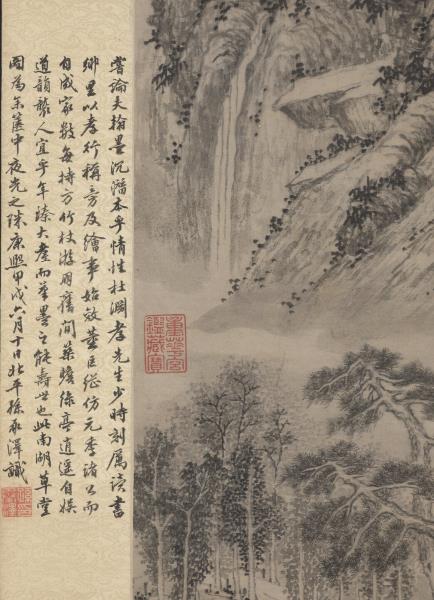 嘗論夫翰墨沉潛本乎情性杜淵孝先生少時刻厲讀書
鄉里以孝行稱旁及繪事始效董巨繼仿元季諸公而
自成家數每持方竹杖遊朋舊間綠亭逍遙自娛
道韻襲人宜乎年臻大耋而筆墨之能壽世也此南湖草堂
圖為余篋中夜光之珠康熙甲戌六月十日北平孫承澤識
重華宮
鑑藏寶